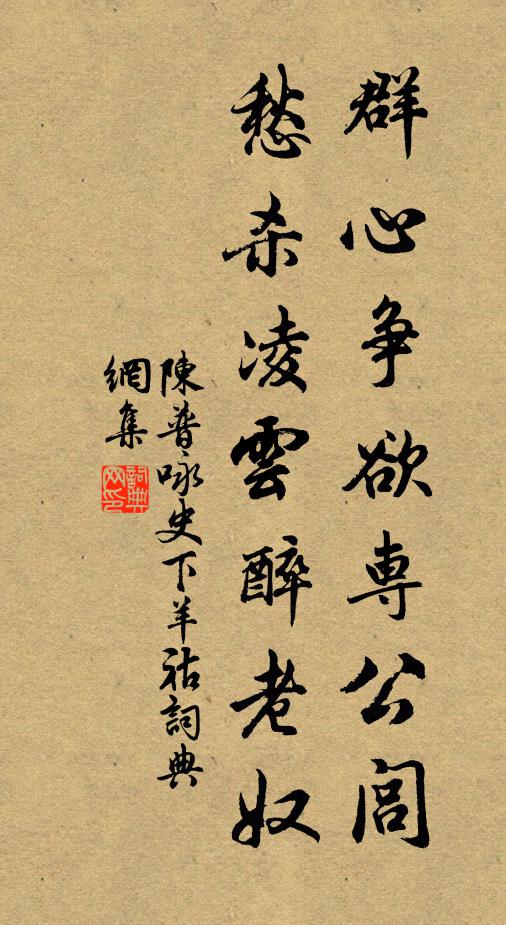 群心爭欲專公閭
愁杀凌雲醉老奴
陳普咏史下羊祜詞典
網集
詞典網印